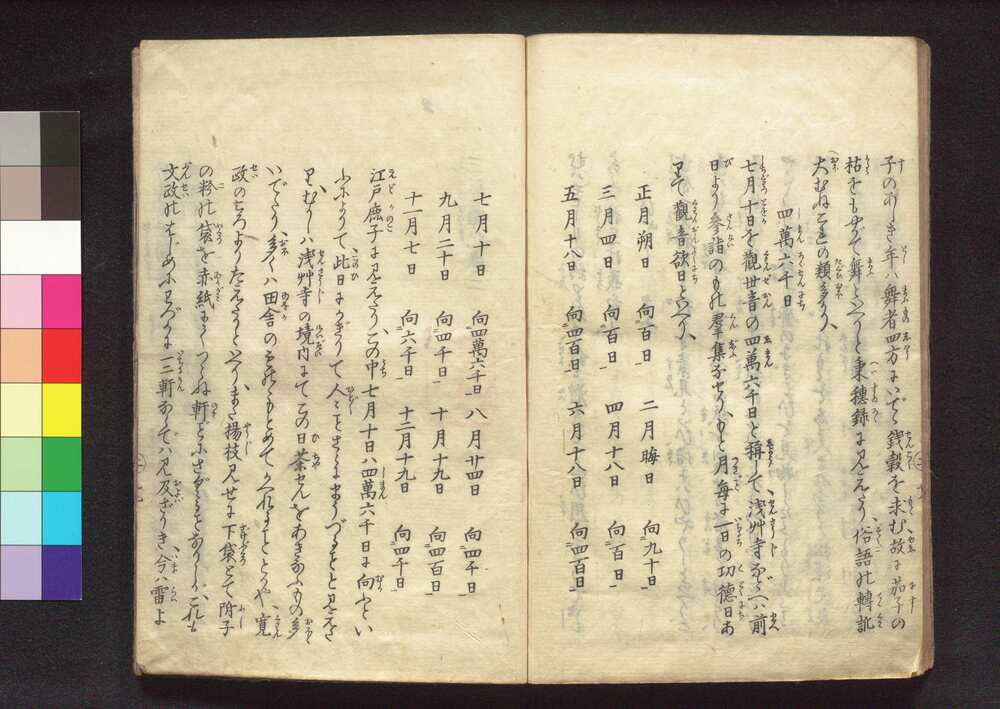 子のあしき年ハ舞者四方にいでゝ錢穀を求む故に茄子の
枯をもなすて舞といへりと秉穗録に見えたり俗語の轉訛
大むねこれらの類多かり
四萬六千日
七月十日を觀世音の四萬六千日と稱して淺艸寺などへハ前
日より參詣のもの羣集なせりもと月毎に一日の功德日あ
りて觀音欲日といへり
正月朔日 向百日 二月晦日 向九十日
三月四日 向百日 四月十八日 向百日
五月十八日 向四百日 六月十八日 向四百日
七月十日 向四萬六千日 八月廿四日 向四千日
九月二十日 向四千日 十月十九日 向四百日
十一月七日 向六千日 十二月十九日 向四千日
江戸鹿子に見えたりこの中七月十日ハ四萬六千日に向ふとい
ふによりて此日にかぎりて人々ことさらにまうづることと見えた
りむかしハ淺艸寺の境内にてこの日茶せんをあきなふもの多く
いでたり多くハ田舎の もとめてかへれりとぞ 寛
政のころよりたえたりといへりまた揚枝見せに下袋とて附子
の粉の袋を赤紙にてつくね軒 にさげ ありしがこれも
文政のはじめにわづかに二三軒ありて見及びき今ハ雷よ